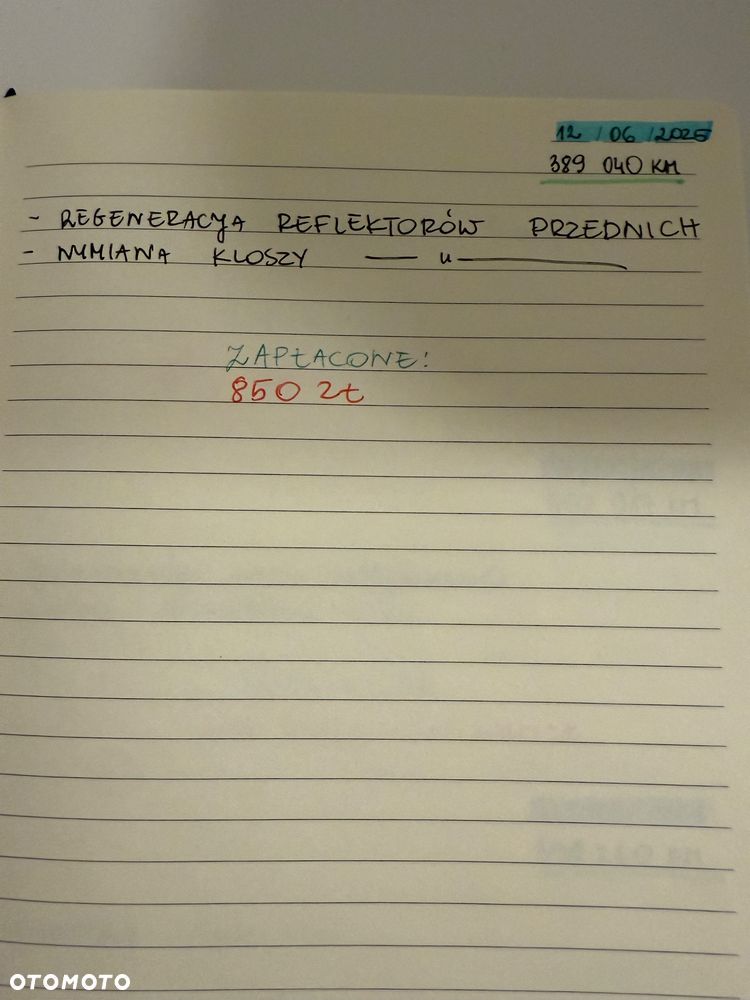 12/06/2025
389 040 KM
- REGENERACJA REFLEKTORÓW PRZEDNICH
- WYMIANA KLOSZY — u —
ZAPŁACONE!
850 zł
OTOMOTO